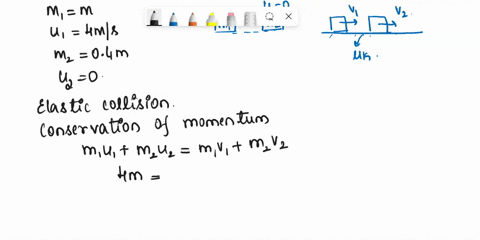 m₁ = m
u₁ = 4m/s
m₂ = 0.4m
u₂ = 0
v₁ v₂
μk
Elastic collision.
Conservation of momentum
m₁u₁ + m₂u₂ = m₁v₁ + m₂v₂
4m =